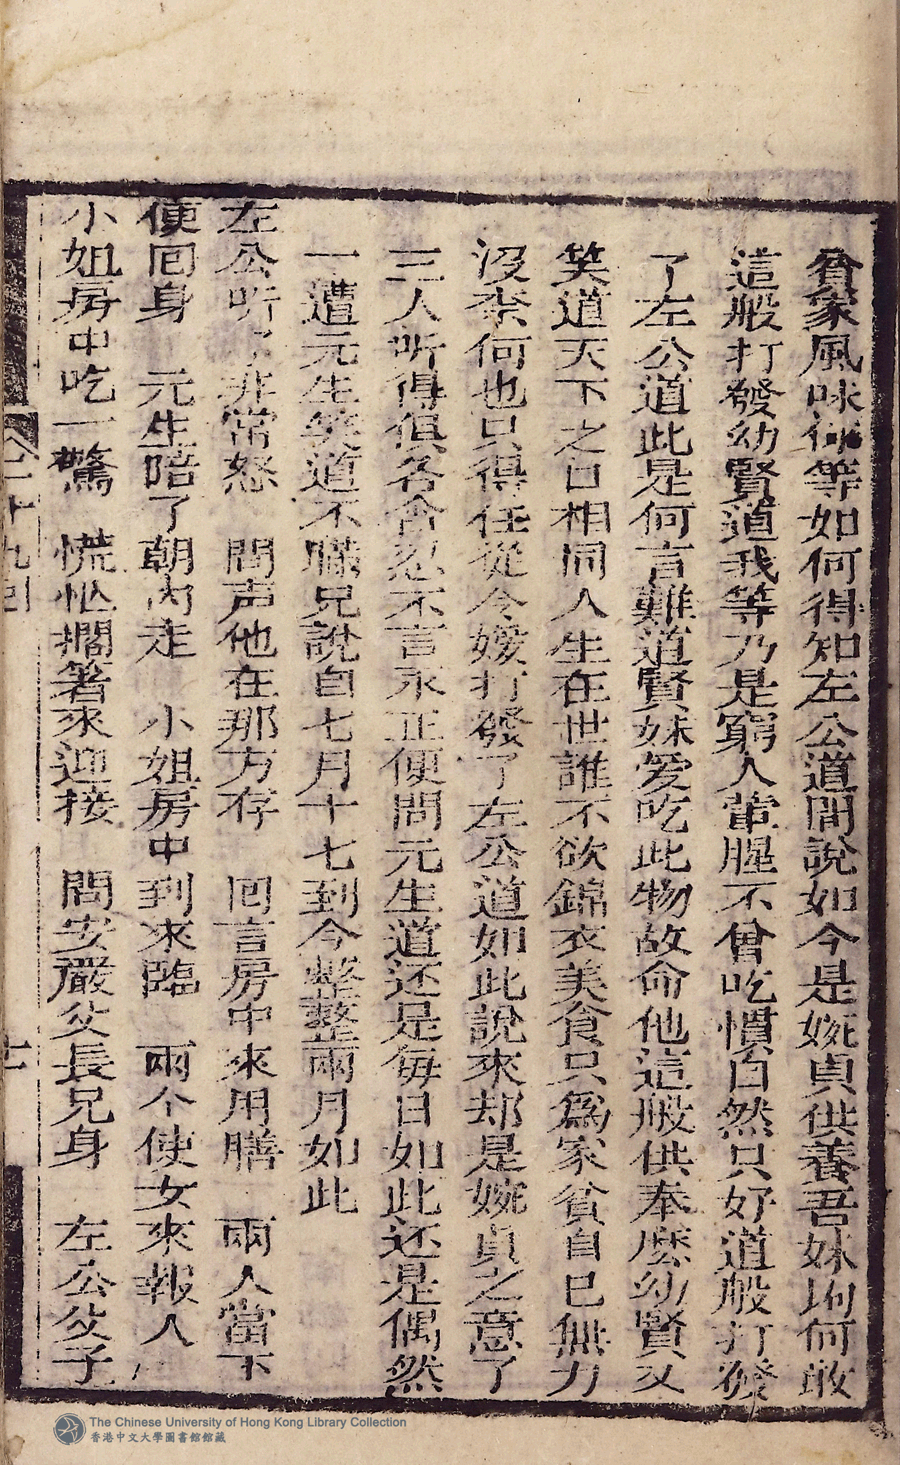 貧家風味你等如何得知左公道間說如今是婉貞供養吾妹均何敢
這般打發幼賢道我等乃是窮人葷腥不曾吃慣自然只好道般打發
了左公道此是何言難道賢妹爱吃此物故命他這般供奉麽幼賢又
笑道天下之口相同人生在世誰不欲錦衣美食只為家貧自己無力
沒柰何也只得任從令嫒打發了左公道如此說來却是婉貞之意了
三人听得俱各含忍不言永正便問元生道还是每日如此还是偶然
一遭元生笑道不瞞兄說自七月十七到今整整兩月如此
左公听了非常怒 問声他在那方存 回言房中來用膳 兩人當下
便回身 元生陪了朝內走 小姐房中到来臨 兩个使女來報人
小姐房中吃一驚 慌忙擱箸來迎接 問安嚴父長兄身 左公父子
二十九回
十一
The Chinese University of Hong Kong Library Collection
香港中文大學圖書館館藏